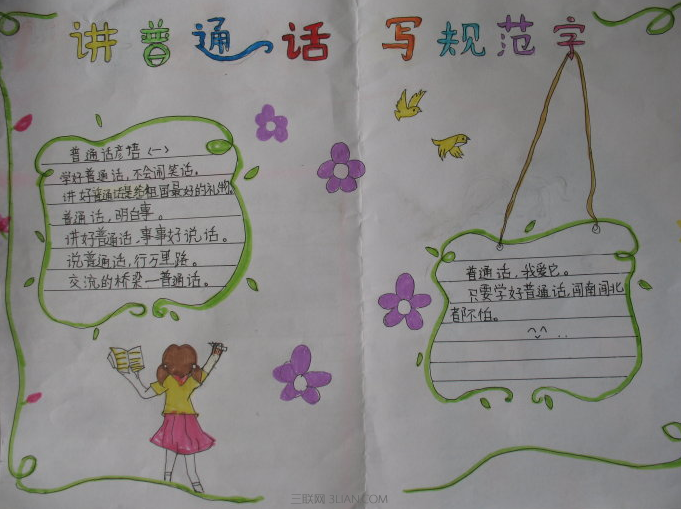 讲普通话 写规范字
普通话彦语（一）
学好普通话，不会闹笑话。
讲好普通话是给祖国最好的礼物。
普通话，明白事。
讲好普通话，事事好说话。
说普通话，行万里路。
交流的桥梁—普通话。
普通话，我爱它。
只要学好普通话，闯南闯北
都不怕。
三联网 3LIAN.COM